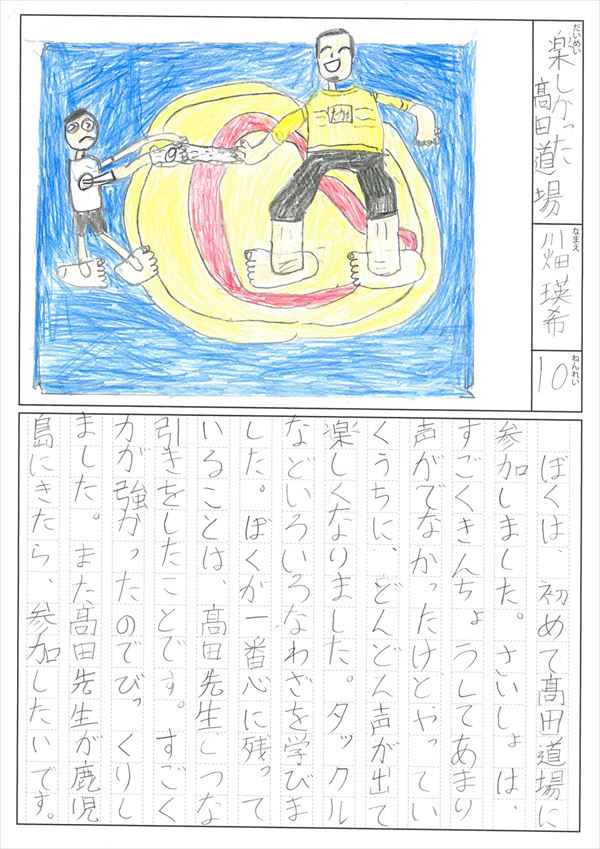 だいめい
楽しかった
髙田道場
なまえ
川畑瑛希
ねんれい
10
ぼくは、初めて髙田道場に
参加しました。さいしょは、
すごくきんちょうしてあまり
声がでなかったけどやってい
くうちに、どんどん声が出て
楽しくなりました。タックル
などいろいろなわざを学びま
した。ぼくが一番心に残って
いることは、髙田先生とつな
引きをしたことです。すごく
力が強かったのでびっくりし
ました。また髙田先生が鹿児
島にきたら、参加したいです。